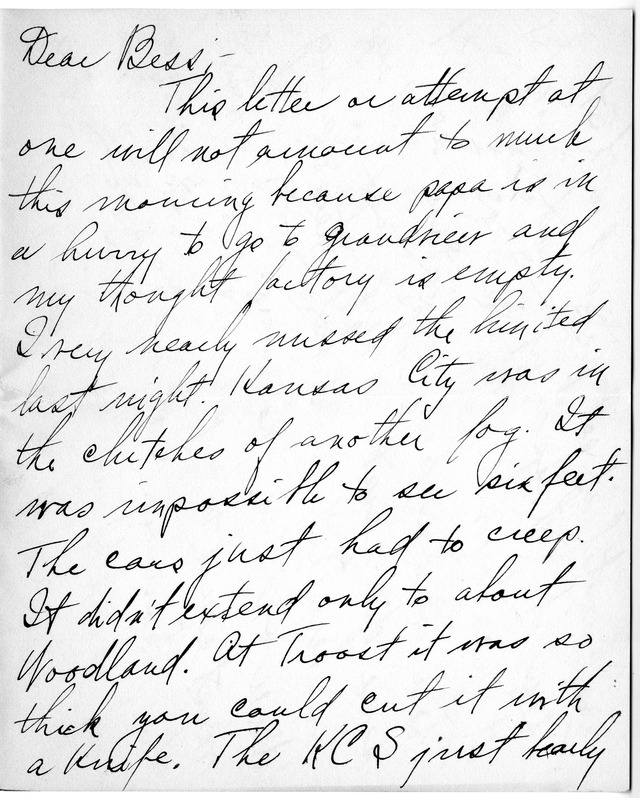 Dear Bess;-
This letter or attempt at
one will not amount to much
this morning because papa is in
a hurry to go to Grandview and
my thought factory is empty.
I very nearly missed the limited
last night. Kansas City was in
the clutches of another fog. It
was impossible to see six feet.
The cars just had to creep.
It didn't extend only to about
Woodland. At Troost it was so
thick you could cut it with
a knife. The KCS just barely